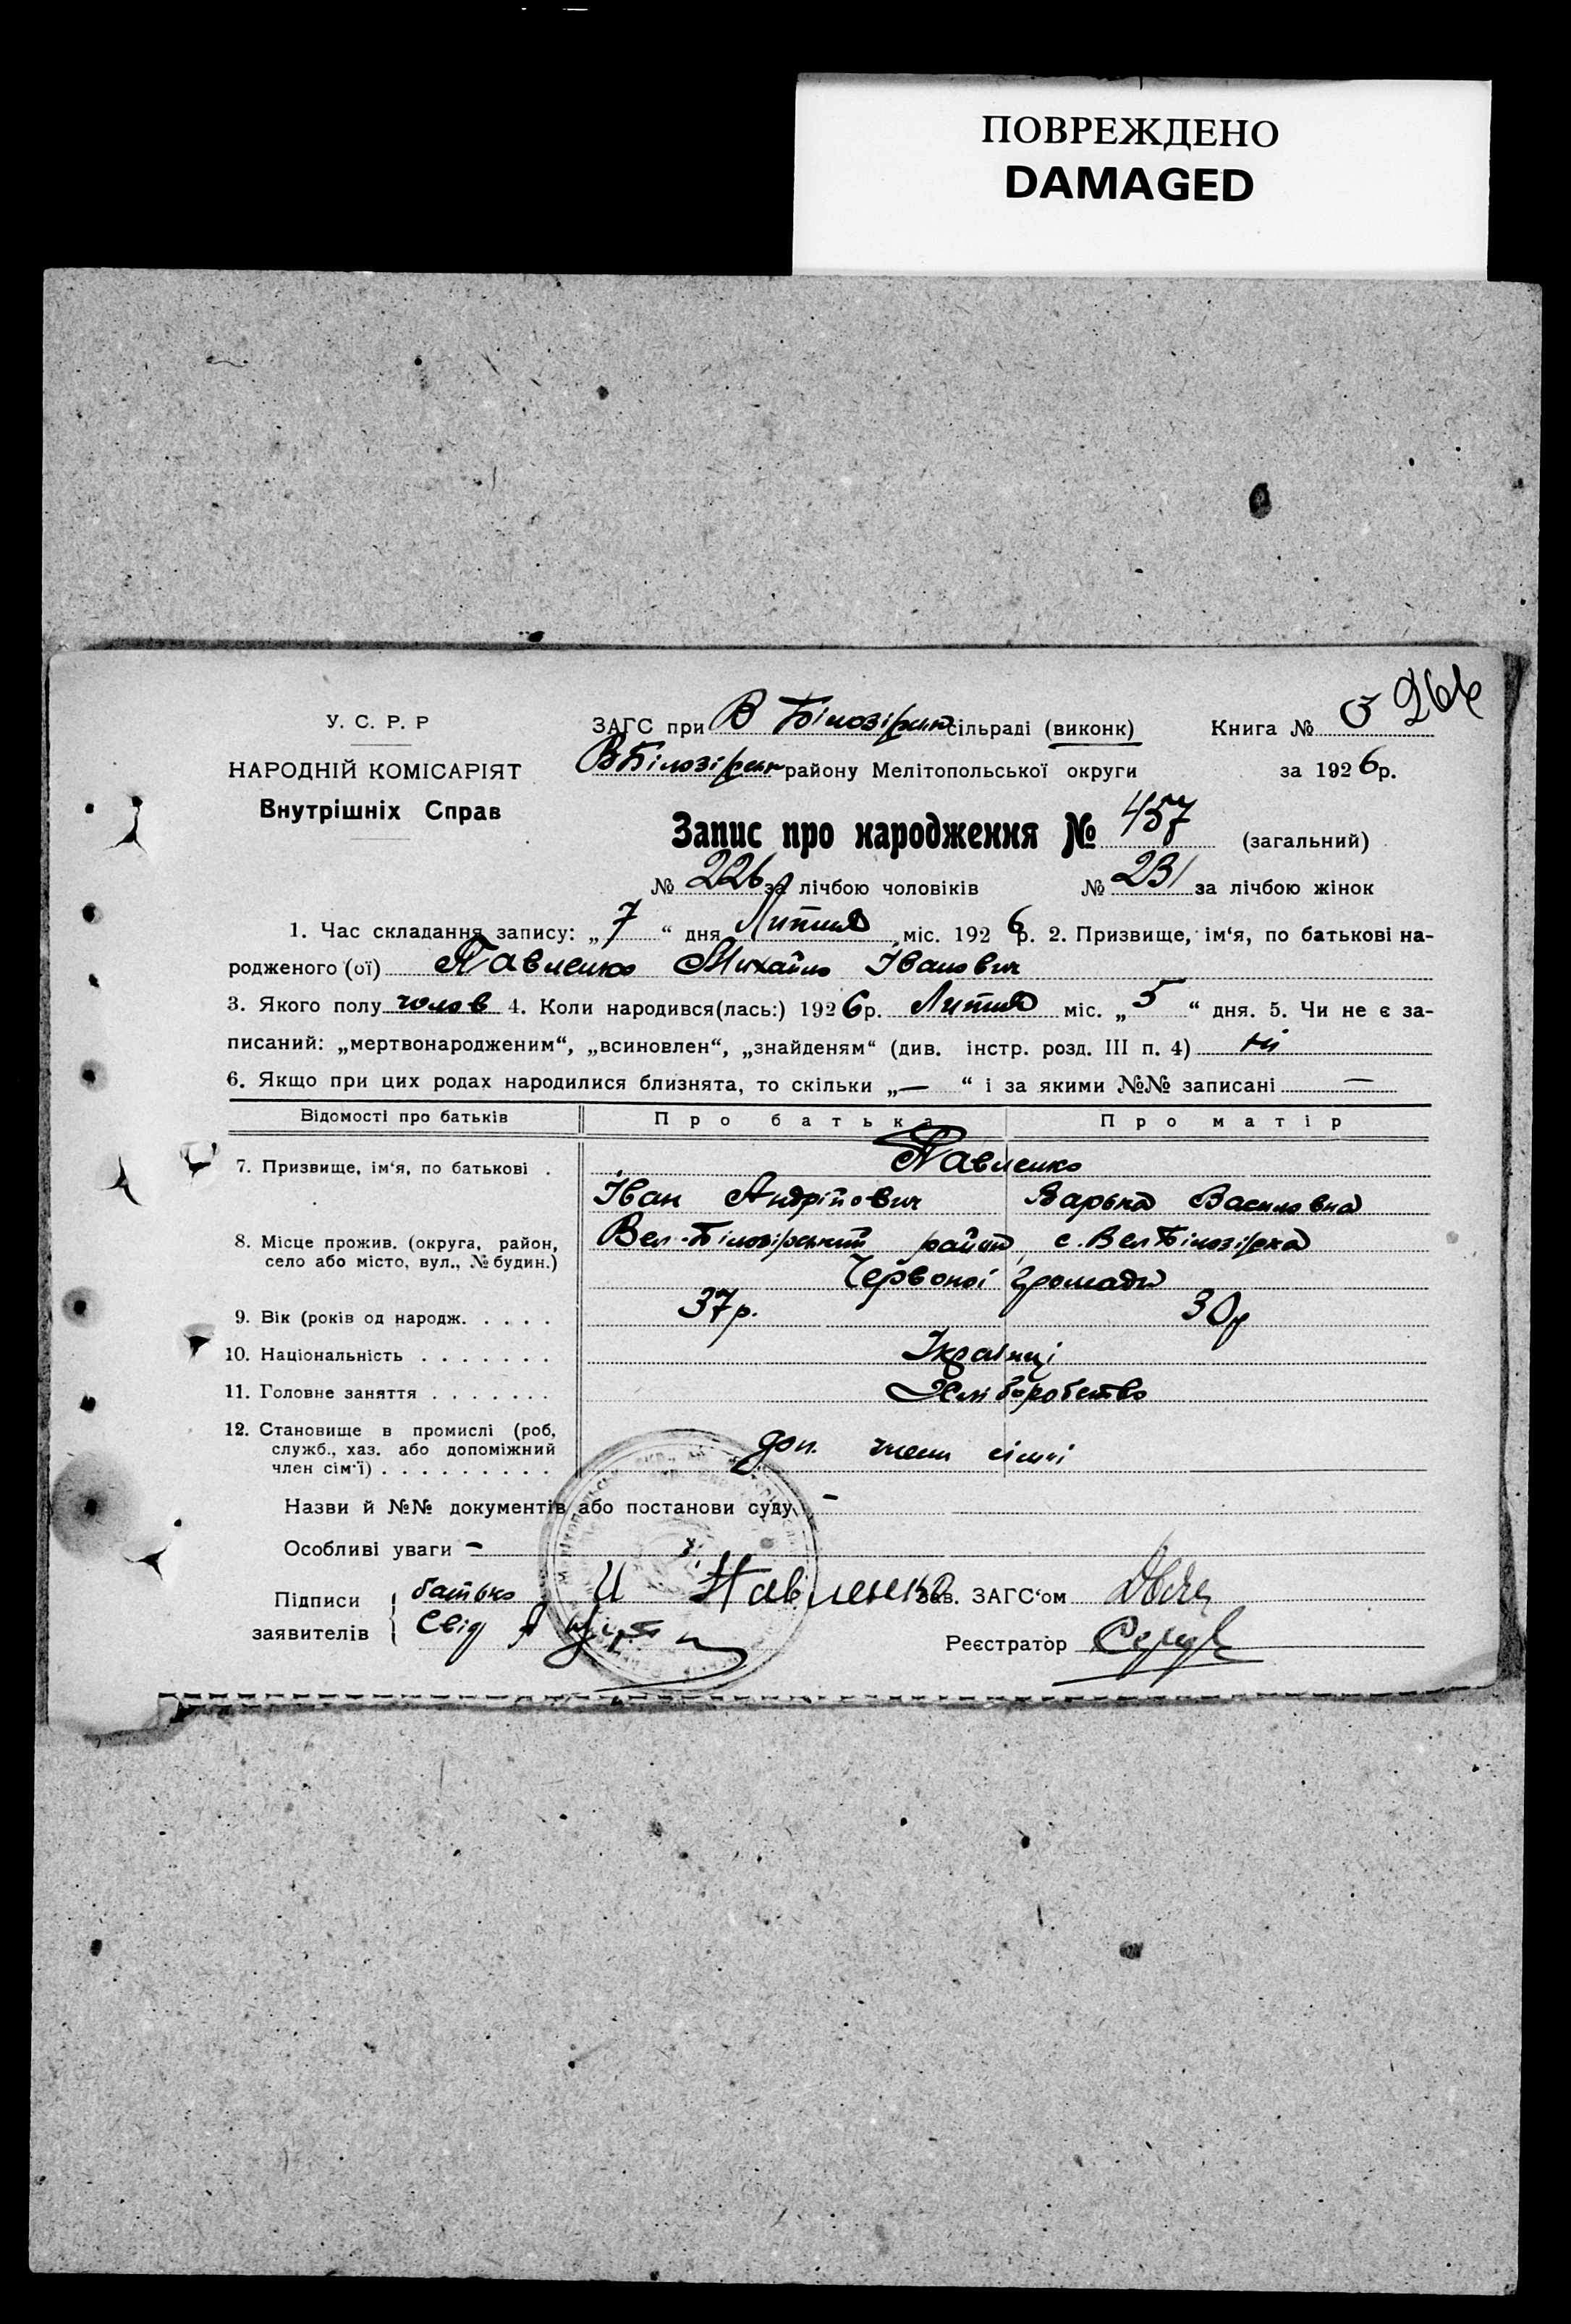 ПОВРЕЖДЕНО
DAMAGED
264
У. С. Р. Р
НАРОДНІЙ КОМІСАРІЯТ
Внутрішніх Справ
ЗАГС при В Білозірськ сільраді (виконк)
Книга № 3
В Білозірськ району Мелітопольської округи
за 1926р.
Запис про народження № 457 (загальний)
№ 226 за лічбою чоловіків № 231 за лічбою жінок
1. Час складання запису: „7“ дня Липня міс. 1926р. 2. Призвище, ім‘я, по батькові на-
родженого (ої) Павленко Михайло Іванович
3. Якого полу чолов 4. Коли народився(лась:) 1926р. Липня міс. „5“ дня. 5. Чи не є за-
писаний: „мертвонародженим“, „всиновлен“, „знайденям“ (див. інстр. розд. III п. 4) ні
6. Якщо при цих родах народилися близнята, то скільки „—“ і за якими №№ записані —
Відомості про батьків Про батька Про матір
7. Призвище, ім‘я, по батькові . Павленко
Іван Андрійович Варька Василовна
8. Місце прожив. (округа, район, село або місто, вул., № будин.) Вел.-Білозірський район, с. Вел Білозірка
Червоної Громади
9. Вік (років од народж. . . . . 37 р. 30 р
10. Національність . . . . . . . Українці
11. Головне заняття . . . . . . . Хліборобство
12. Становище в промислі (роб, служб., хаз. або допоміжний член сім‘ї) . . . . . . . . . доп. член сімї
Назви й №№ документів або постанови суду –
Особливі уваги –
Підписи заявителів
батько И Павленко
Свід Я
Зав. ЗАГС‘ом
Реєстратор